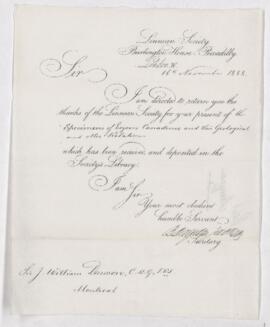 Linnean Society
Burlington House, Piccadilly
London W.
16th November 1888.
Sir
I am directed to return you the
thanks of the Linnean Society for your present of the
Specimens of Eozoon Canadense and the Geological
and other
which has been received and deposited in the
Society's Library.
I am Sir
Your most obedient
humble Servant
Secretary
Sir J. William Dawson, C.M.G. FRS
Montreal